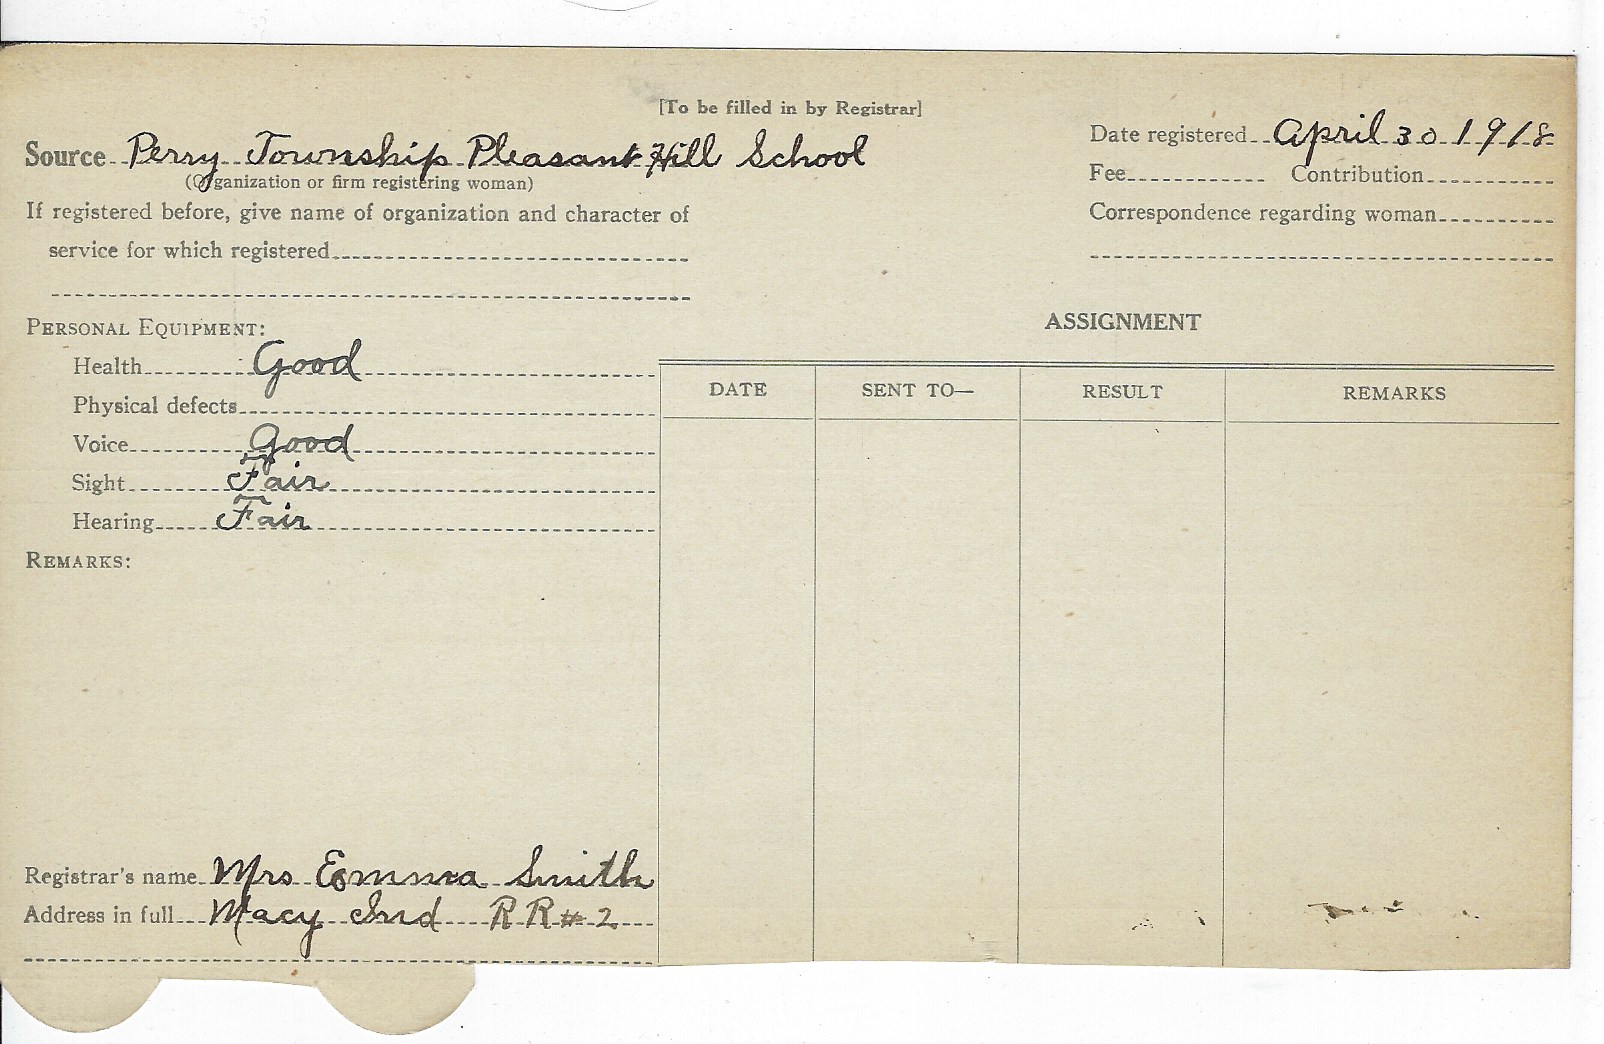 [To be filled in by Registrar]
Source Perry Township Pleasant Hill School
(Organization or firm registering woman)
If registered before, give name of organization and character of
service for which registered
Date registered April 30 1918
Fee Contribution
Correspondence regarding woman
PERSONAL EQUIPMENT:
Health Good
Physical defects
Voice Good
Sight Fair
Hearing Fair
REMARKS:
ASSIGNMENT
DATE SENT TO— RESULT REMARKS
Registrar's name Mrs Emma Smith
Address in full Macy Ind RR#2